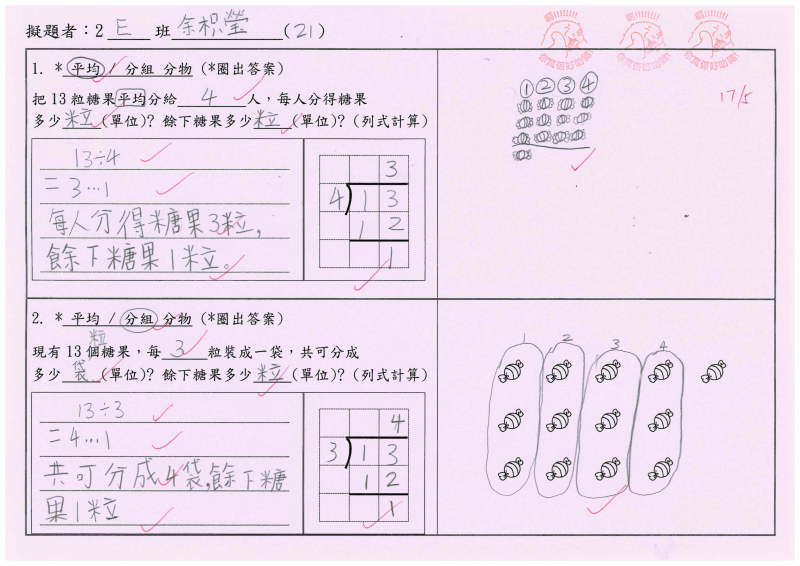 擬題者：2 E 班 余枳瑩 (21)
1. * 平均 / 分組 分物 (*圈出答案)
把 13 粒糖果平均分給 4 人，每人分得糖果
多少 粒 (單位)? 餘下糖果多少 粒 (單位)? (列式計算)
13÷4
= 3…1
每人分得糖果3粒，
餘下糖果1粒。
3
4 1 3
1 2
1
① ② ③ ④
17/5
2. * 平均 / 分組 分物 (*圈出答案)
粒
現有 13 個糖果，每 3 粒裝成一袋，共可分成
多少 袋 (單位)? 餘下糖果多少 粒 (單位)? (列式計算)
13÷3
= 4…1
共可分成4袋，餘下糖
果1粒
4
3 1 3
1 2
1
1 2 3 4